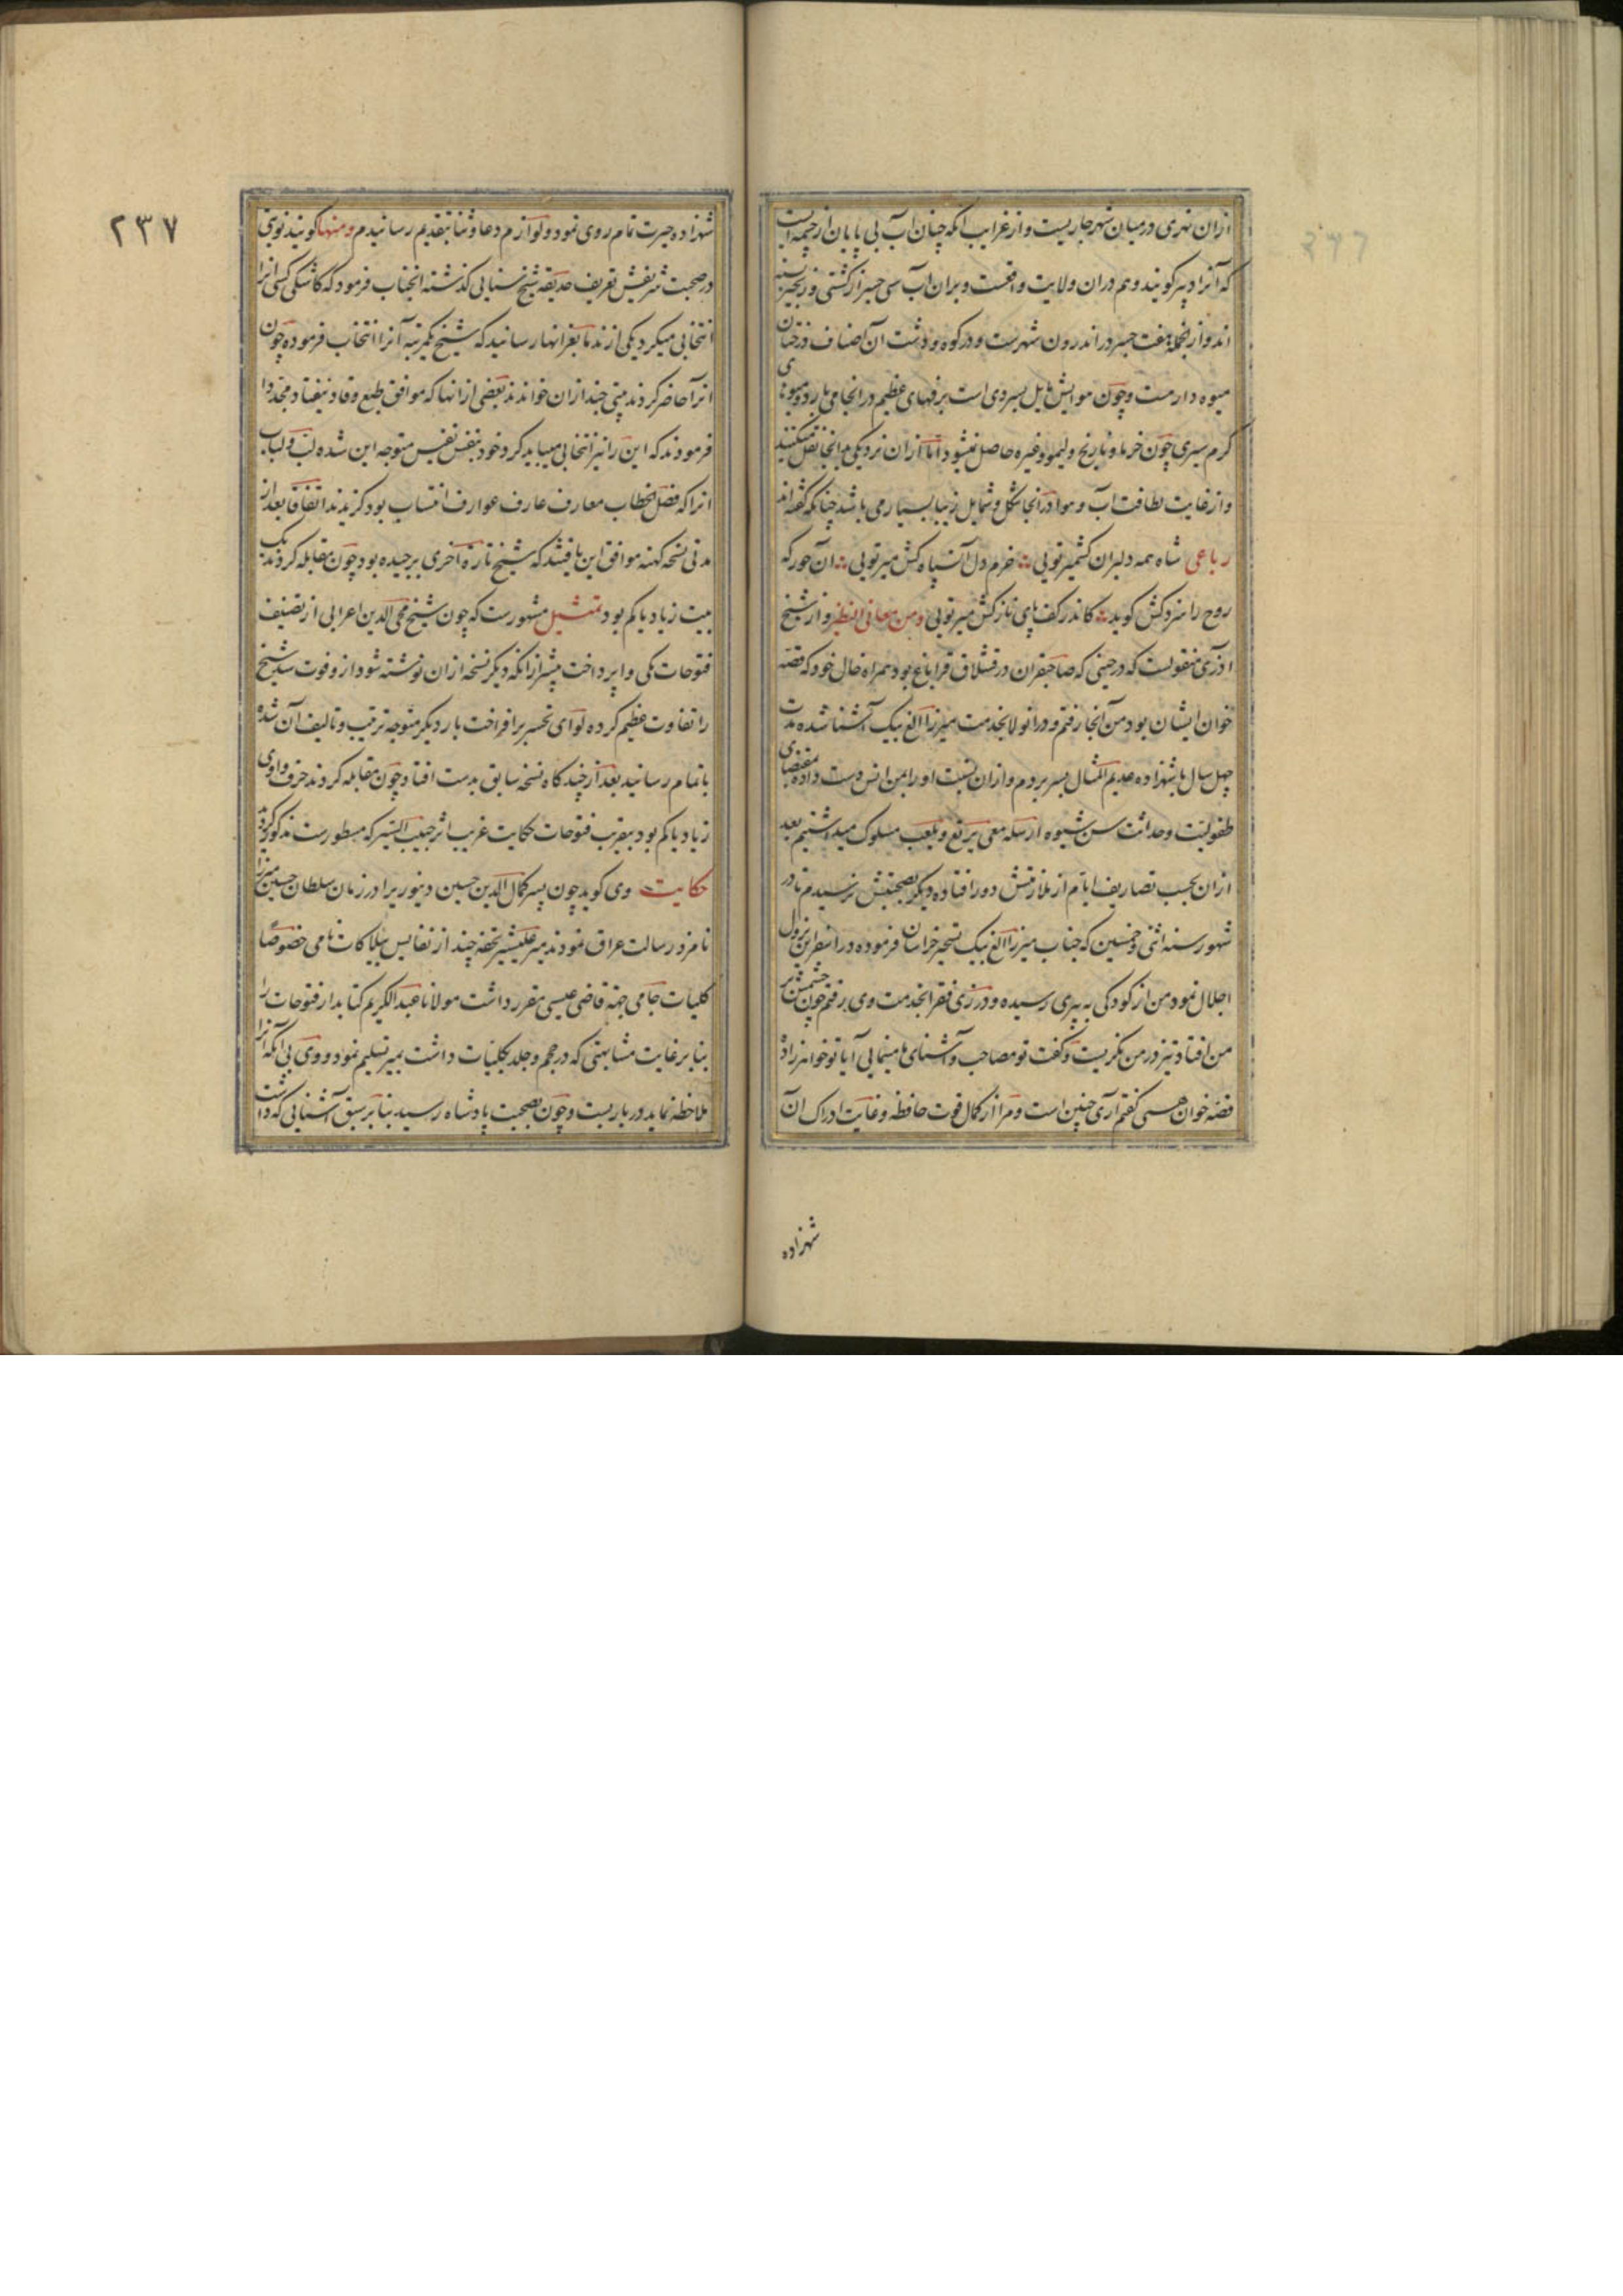 ازان نهری درمیان شهر جاریست و از غرایب آنکه چنان آب بی پایان از چشمه ایست
که آنرا دیر کویند و هم دران ولایت واقعست و بران آب سی جسر از کشتی و زنجیر بسته
اند و ازانجمله هفت جسر در اندرون شهرست و در کوه و دشت آن اصناف درختان
میوه دار هست و چون هوایش مایل بسردی است برفهای عظیم در انجا می بارد و میوهای
کرم سیری چون خرما و نارنج و لیمو و غیره حاصل نمیشود اما ازان نزدیکی بانجا نقل میکنند
و از غایت لطافت آب و هوا در انجا شکل و شمایل زیبا بسیار می باشد چنانکه کفته اند
رباعی شاه همه دلبران کشمیر تویی خرم دل آن سپاه کش میر تویی آن حور که
روح را سزد کش کوید کاندر کف پای نازکش میر تویی و من معانی النظیر و از شیخ
آذری منقولست که در حینی که صاحبقران در قشلاق قراباغ بود همراه خال خود که قصه
خوان ایشان بود من آنجا رفتم و در انولا بخدمت میرزا الغ بیک آشنا شده مدت
چهل سال با شهزاده عدیم المثال بسر بردم و ازان نسبت او را بمن انس دست داده بمقتضای
طفولیت و حداثت سن شیوه ارسله معی یرتع و یلعب مسلوک میداشتیم بعد
ازان بحسب تصاریف ایام از ملازمتش دور افتاده دیکر بصحبتش نرسیدم تا در
شهور سنه اثنی و خمسین که جناب میرزا الغ بیک تسخیر خراسان فرموده در اسفراین نزول
اجلال نمود من از کودکی به پیری رسیده و در زی فقرا بخدمت وی رفتم چون چشمش بر
من افتاد تیز در من نکریست و کفت تو مصاحب و آشنای ما مینمایی آیا تو خواهرزاده
قصه خوان هستی کفتم آری چنین است و مرا از کمال قوت حافظه و غایت ادراک آن
شهزاده
۲۳۷
شهزاده حیرت تمام روی نمود و لوازم دعا و ثنا بتقدیم رسانیدم و منها کویند نوبتی
در صحبت شریفش تعریف حدیقه شیخ سنایی کذشته آنجناب فرمود که کاشکی کسی آنرا
انتخابی میکرد یکی از ندما بعز انها رسانید که شیخ یکمرتبه آنرا انتخاب فرموده چون
آنرا حاضر کردند بیتی چند ازان خواندند بعضی ازانها که موافق طبع وقاد نیفتاد مجددا
فرمودند که این را نیز انتخابی میباید کرد خود بنفس نفیس متوجه این شده لب و لباب
آنرا که فصل الخطاب معارف عارف عوارف انتساب بود کزیدند اتفاقا بعد از
مدتی نسخه کهنه موافق این یافتند که شیخ تارة اخری برچیده بود چون مقابله کردند یک
بیت زیاد یا کم بود تمثیل مشهورست که چون شیخ محی الدین اعرابی از تصنیف
فتوحات مکی وا پرداخت پیشتر ازانکه دیکر نسخه ازان نوشته شود از و فوت شد شیخ
را تفاوت عظیم کرده لوای تحسر برافراخت بار دیکر متوجه ترتیب و تالیف آن شده
باتمام رسانید بعد از چند کاه نسخه سابق بدست افتاد چون مقابله کردند حرف واوی
زیاد یا کم بود بتقریب فتوحات حکایت غریب اثر حبیب السیر که مسطورست مذکور کردید
حکایت وی کوید چون پسر کمال الدین حسین دینوریرا در زمان سلطان حسین میرزا
نامزد رسالت عراق نمودند میر علیشیر تحفه چند از نفایس بیلاکات نامی خصوصا
کلیات جامی جهة قاضی عیسی مقرر داشت مولانا عبدالکریم کتابدار فتوحات را
بنابر غایت مشابهتی که در حجم و جلد بکلیات داشت بمیر تسلیم نمود و وی بی آنکه آنرا
ملاحظه نماید در بار بست و چون بصحبت پادشاه رسید بنابر سبق آشنایی که داشت